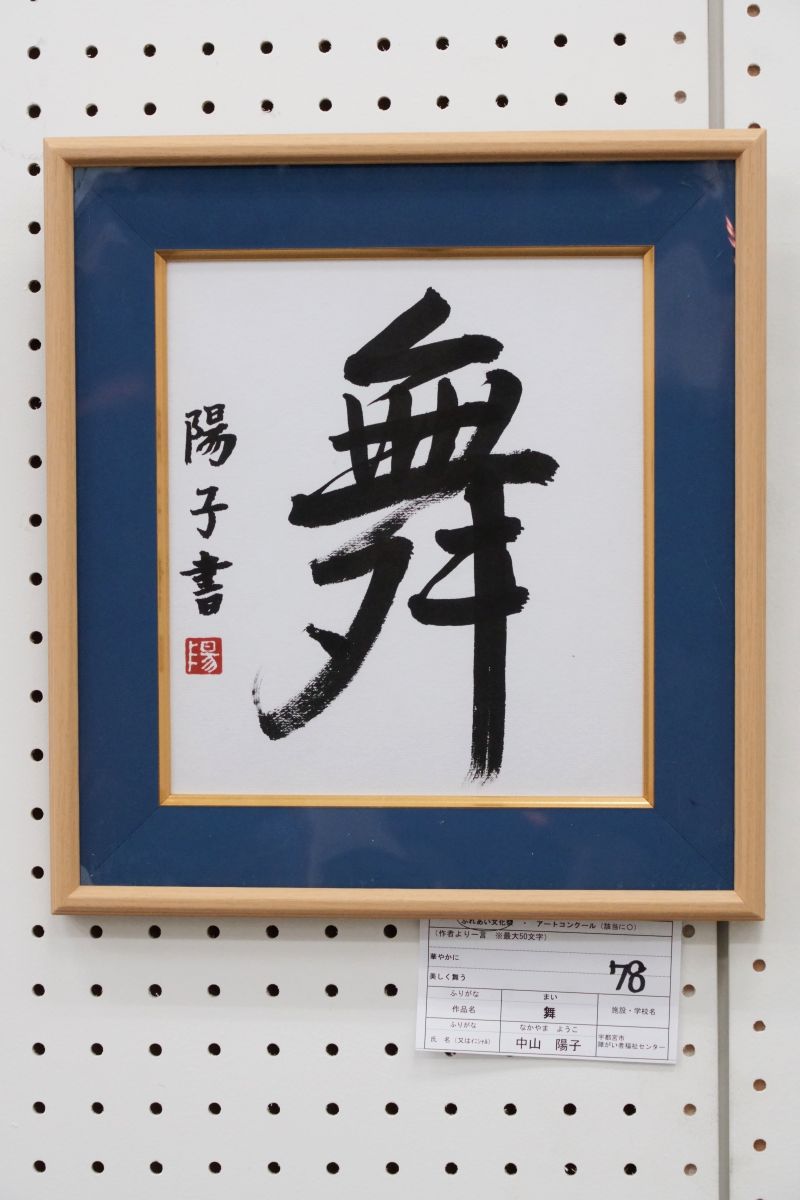 舞
陽子書
陽
ふれあい文化祭 ・ アートコンクール（該当に〇）
（作者より一言 ※最大50文字）
華やかに
美しく舞う
78
ふりがな まい
作品名 舞 施設・学校名
ふりがな なかやま ようこ
氏 名（又はｲﾆｼｬﾙ） 中山 陽子 宇都宮市
障がい者福祉センター